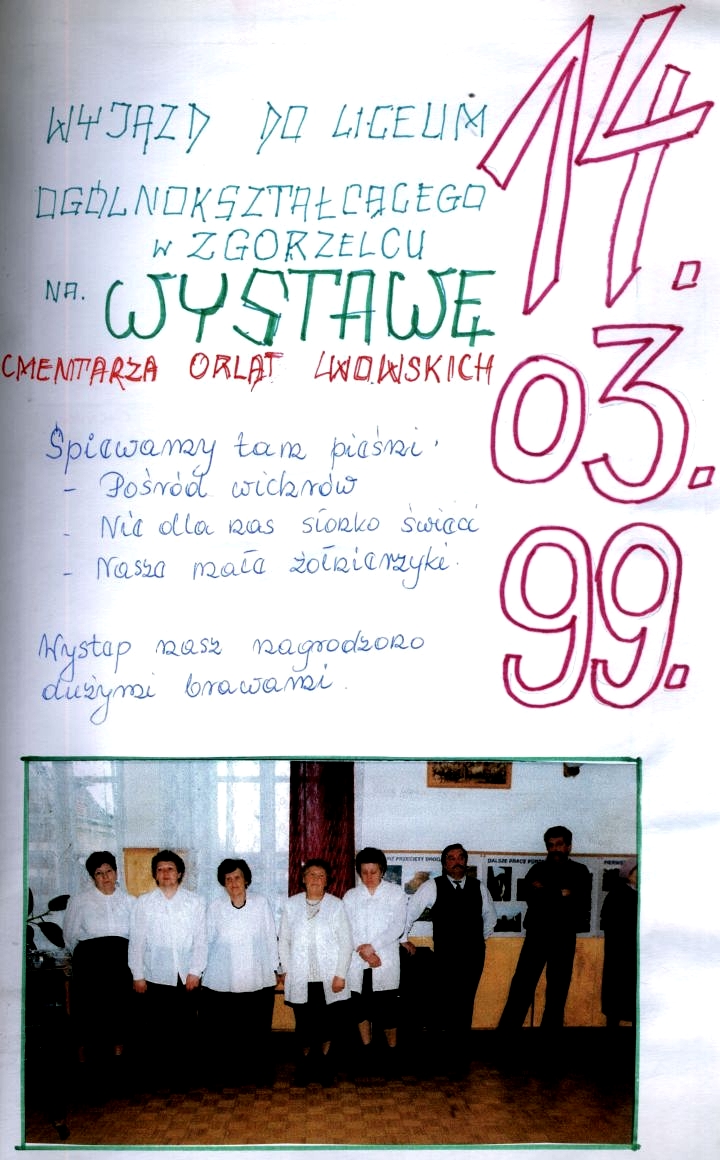 14.
03.
99.
WYJAZD DO LICEUM
OGÓLNOKSZTAŁCĄCEGO
W ZGORZELCU
NA. WYSTAWĘ
CMENTARZA ORLĄT LWOWSKICH
Śpiewamy tam pieśni.
- Pośród wichrów
- Nie dla nas słonko świeci
- Nasze małe żołnierzyki.
Występ nasz nagrodzono
dużymi brawami.
PRZECIĘTY DROGĄ
DALSZE PRACE
PIERWS